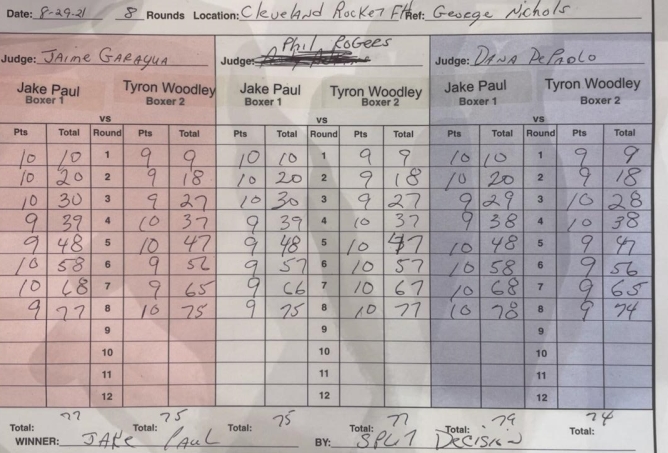 Date: 8-29-21 8 Rounds Location: Cleveland Rocket FH Ref: George Nichols
Judge: Jaime Garayua Judge: Phil Rogers Judge: Dana DePaolo
Jake Paul Tyron Woodley Jake Paul Tyron Woodley Jake Paul Tyron Woodley
Boxer 1 Boxer 2 Boxer 1 Boxer 2 Boxer 1 Boxer 2
vs vs vs
Pts Total Round Pts Total Pts Total Round Pts Total Pts Total Round Pts Total
10 10 1 9 9 10 10 1 9 9 10 10 1 9 9
10 20 2 9 18 10 20 2 9 18 10 20 2 9 18
10 30 3 9 27 10 30 3 9 27 9 29 3 10 28
9 39 4 10 37 9 39 4 10 37 9 38 4 10 38
9 48 5 10 47 9 48 5 10 47 10 48 5 9 47
10 58 6 9 56 9 57 6 10 57 10 58 6 9 56
10 68 7 9 65 9 66 7 10 67 10 68 7 9 65
9 77 8 10 75 9 75 8 10 77 10 78 8 9 74
9 9 9
10 10 10
11 11 11
12 12 12
Total: 77 Total: 75 Total: 75 Total: 77 Total: Total: 74
WINNER: JAKE PAUL BY: SPLIT Decision